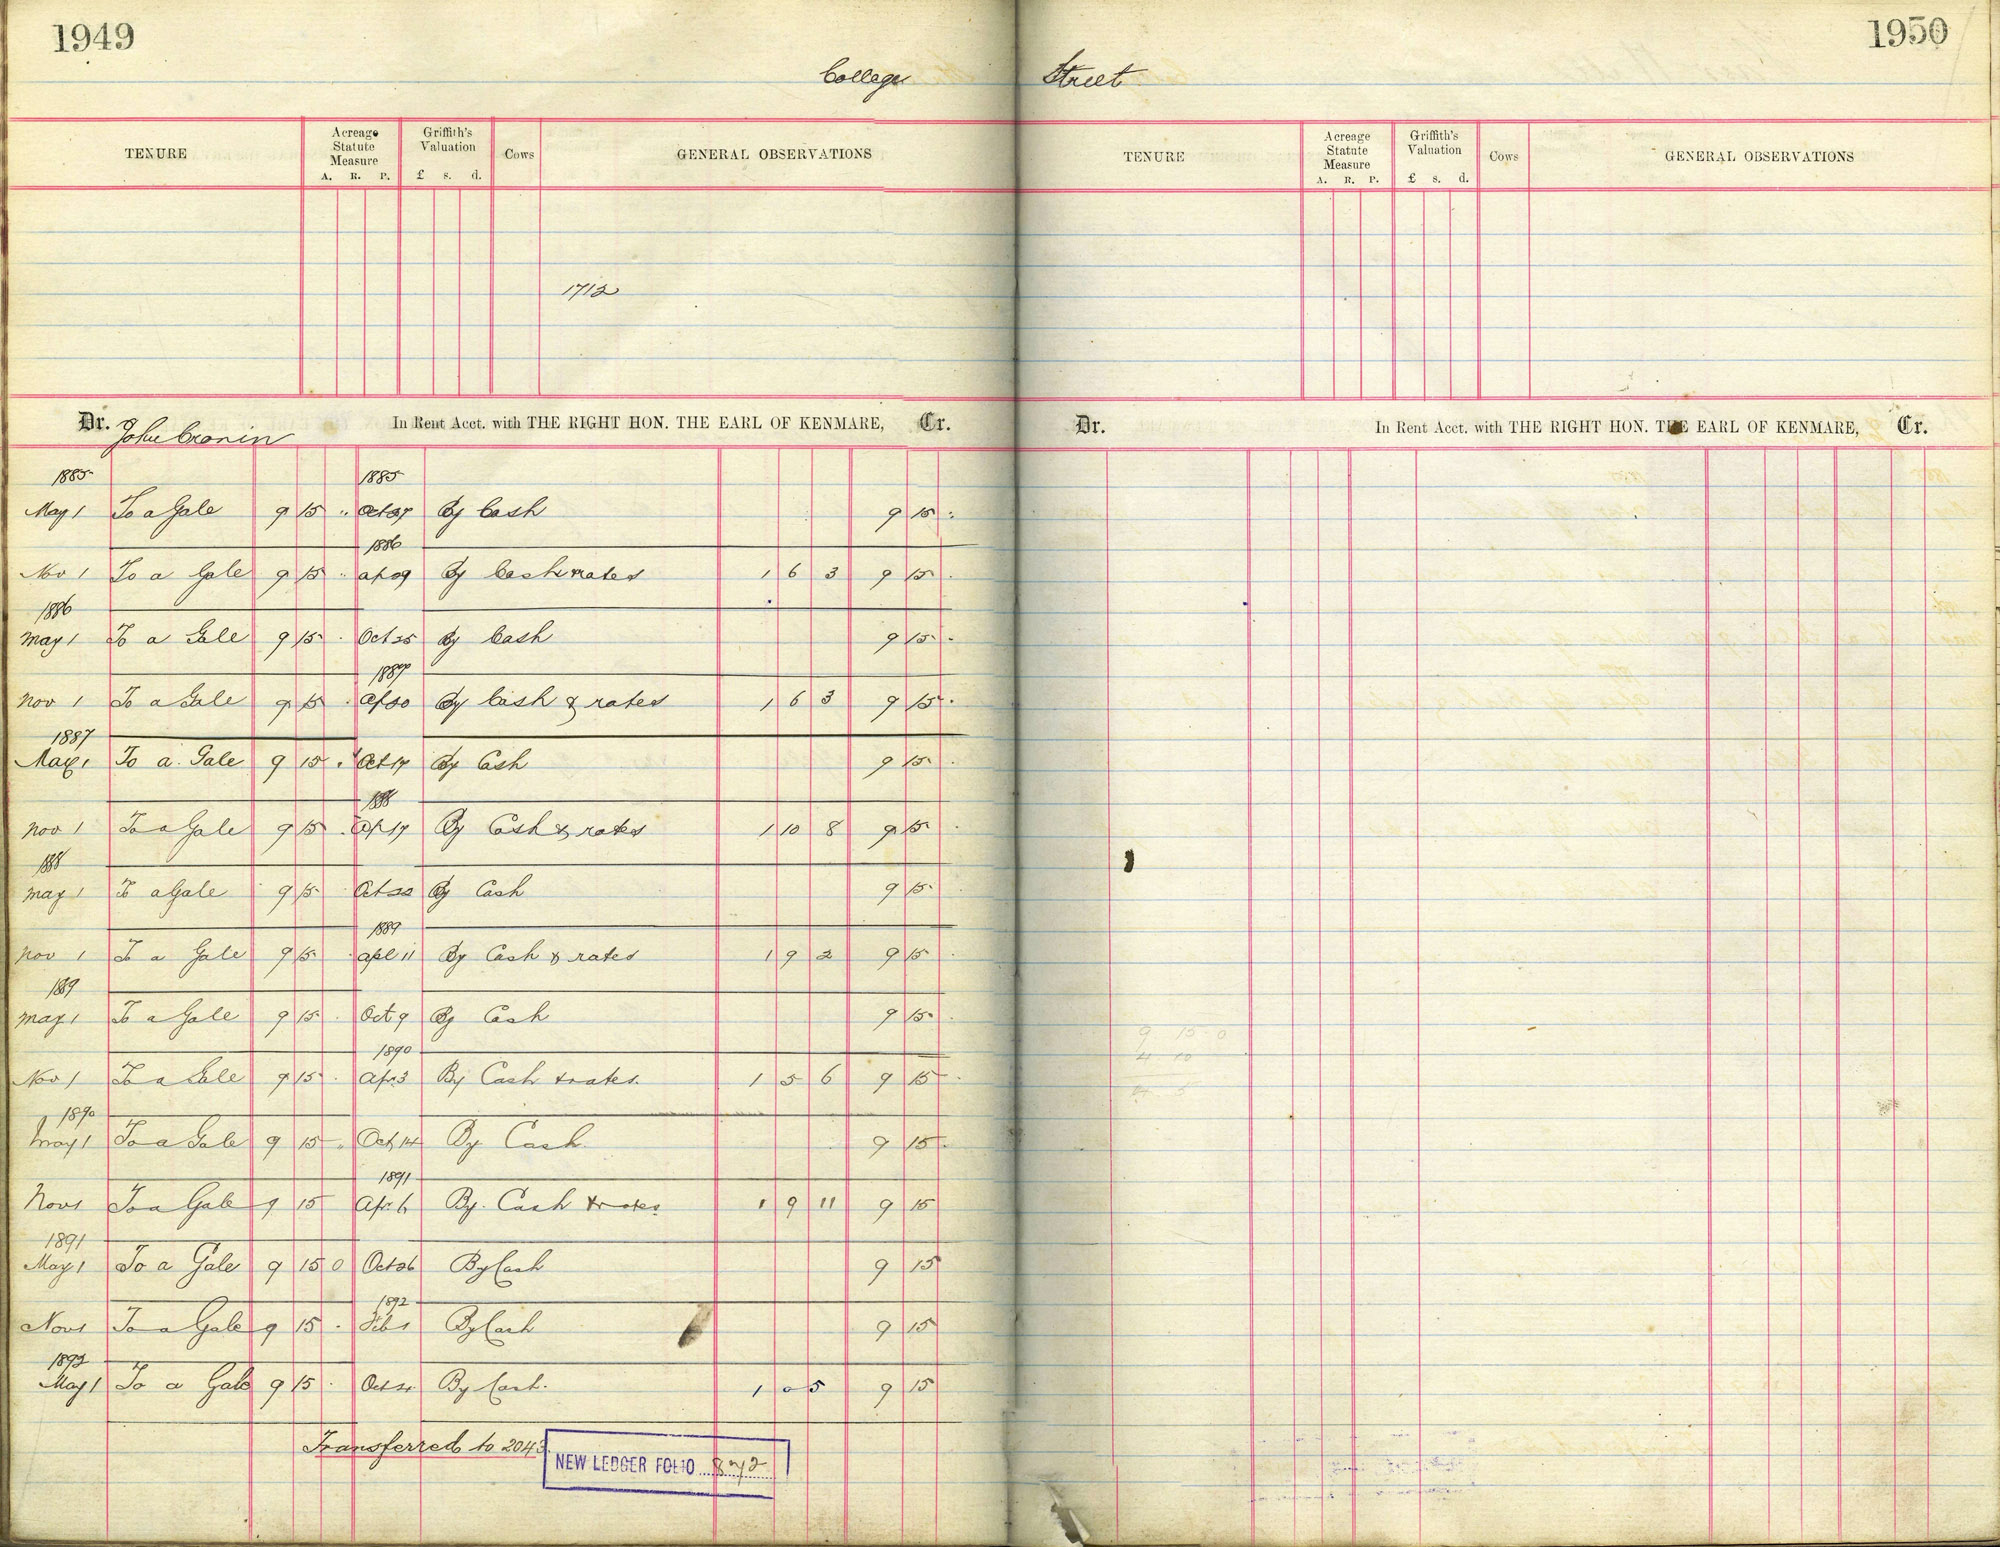 1949
1950
College Street
TENURE
Acreage Statute Measure
A. R. P.
Griffith's Valuation
£ s. d.
Cows
GENERAL OBSERVATIONS
TENURE
Acreage Statute Measure
A. R. P.
Griffith's Valuation
£ s. d.
Cows
GENERAL OBSERVATIONS
1712
Dr. John Cronin In Rent Acct. with THE RIGHT HON. THE EARL OF KENMARE, Cr.
Dr. In Rent Acct. with THE RIGHT HON. THE EARL OF KENMARE, Cr.
1885 1885
May 1 To a Gale 9 15 " Oct 27 By Cash 9 15 "
1886
Nov 1 To a Gale 9 15 " Ap 29 By Cash & rates 1 6 3 9 15 .
1886
May 1 To a Gale 9 15 . Oct 25 By Cash 9 15 .
1887
Nov 1 To a Gale 9 15 . Ap 20 By Cash & rates 1 6 3 9 15 .
1887
May 1 To a Gale 9 15 . Oct 17 By Cash 9 15 .
1888
Nov 1 To a Gale 9 15 . Ap 17 By Cash & rates 1 10 8 9 15 .
1888
May 1 To a Gale 9 15 Oct 22 By Cash 9 15 .
1889
Nov 1 To a Gale 9 15 . Apl 11 By Cash & rates 1 9 2 9 15 .
1889
May 1 To a Gale 9 15 . Oct 9 By Cash 9 15 .
1890
Nov 1 To a Gale 9 15 . Apr 3 By Cash & rates. 1 5 6 9 15 .
1890
May 1 To a Gale 9 15 . Oct 14 By Cash. 9 15 .
1891
Nov 1 To a Gale 9 15 Apr. 6 By Cash & rates 1 9 11 9 15
1891
May 1 To a Gale 9 15 0 Oct 26 By Cash 9 15
1892
Nov 1 To a Gale 9 15 . Feb 1 By Cash 9 15
1892
May 1 To a Gale 9 15 . Oct By Cash. 1 0 5 9 15
Transferred to 2043
NEW LEDGER FOLIO
9 15 0
4 10